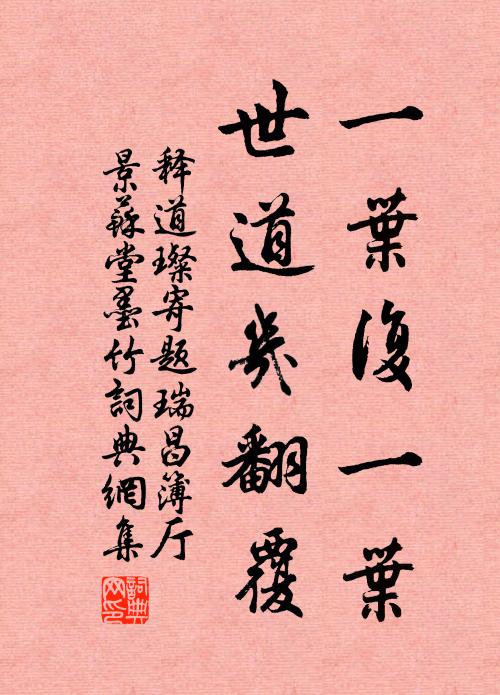 一葉復一葉
世道幾翻覆
释道璨寄题瑞昌簿厅
景蘇堂墨竹詞典網集